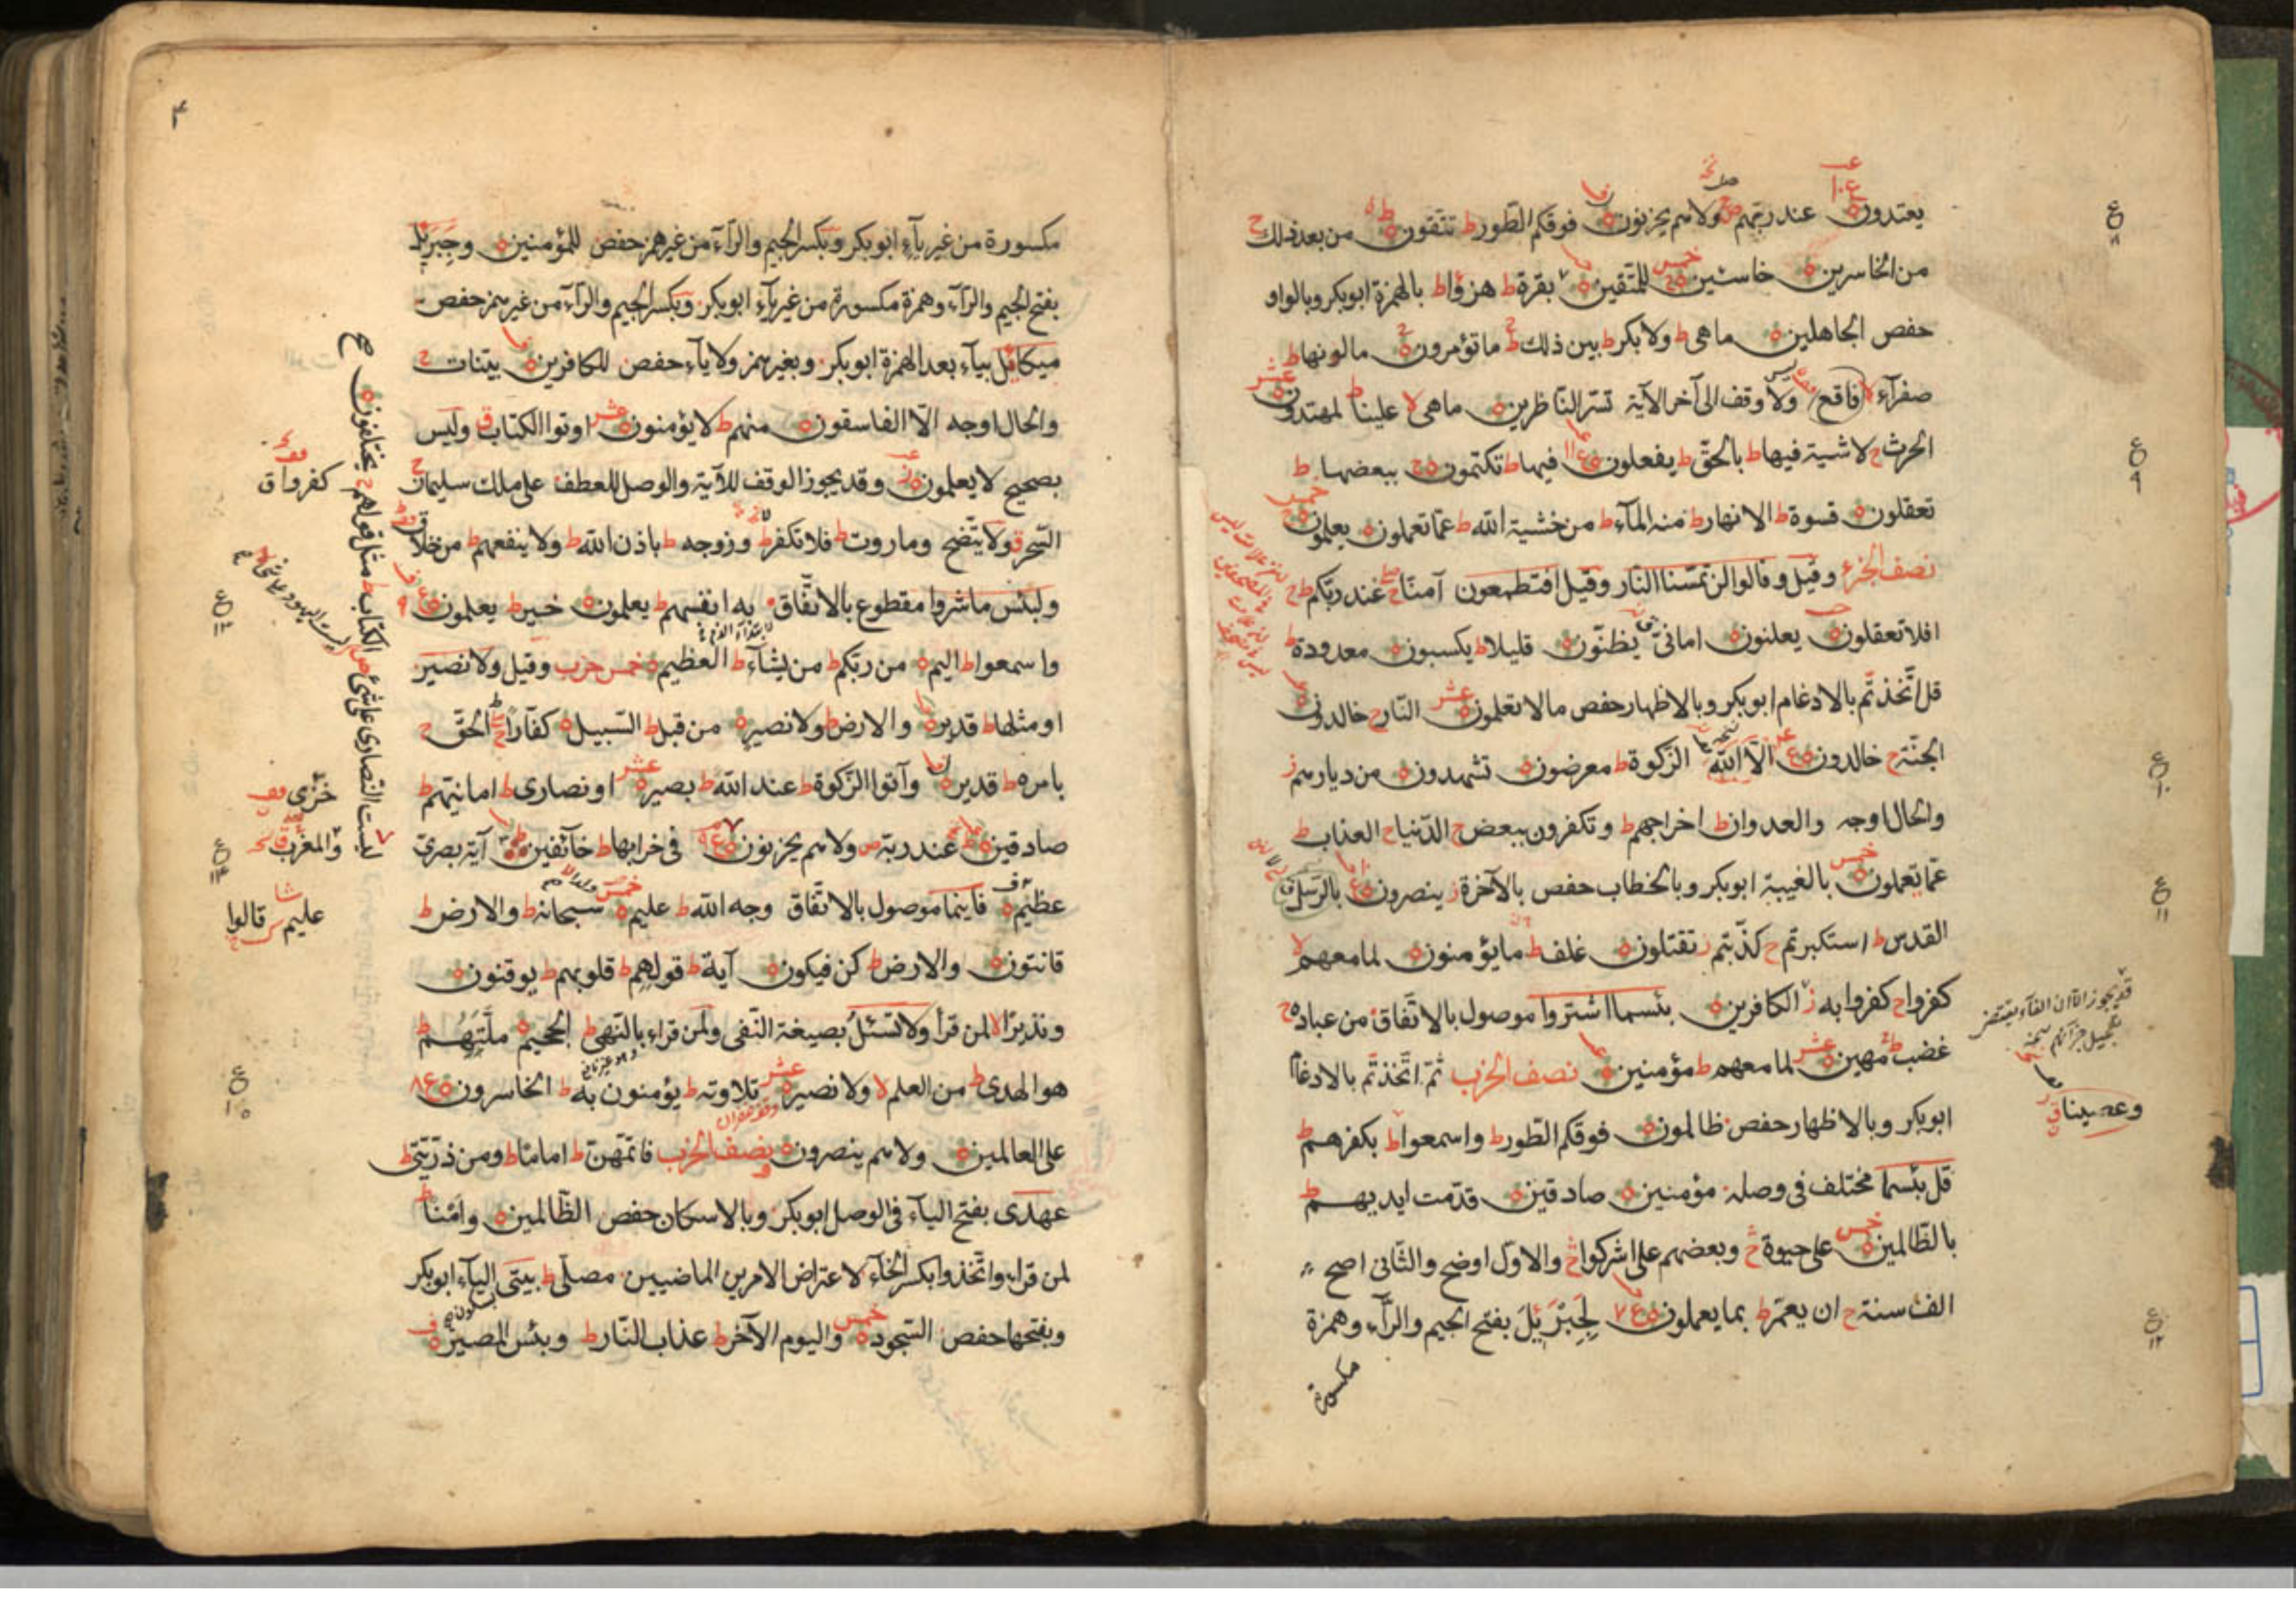 يعتدون ۝ عند ربّهم ولا هم يحزنون ۝ فوقكم الطّور ط تتّقون ۝ من بعد ذلك ج
من الخاسرين ۝ خاسئين ۝ للمتّقين ۝ بقرة ط هزؤا ط بالهمزة ابوبكر وبالواو
حفص الجاهلين ۝ ما هى ط ولا بكر ط بين ذلك ط ما تؤمرون ۝ ما لونها ط
صفرآء لا فاقع ولا وقف الى آخر الآية تسرّ النّاظرين ۝ ما هى لا علينا ط لمهتدون ۝
الحرث ج لا شية فيها ط بالحقّ ط يفعلون ۝ فيها ط تكتمون ۝ ببعضها ط
تعقلون ۝ قسوة ط الانهار ط منه المآء ط من خشية الله ط عمّا تعملون ۝ يعلمون ۝
نصف الجزء وقيل وقالوا لن تمسّنا النّار وقيل افتطمعون آمنّا ج عند ربّكم ط
افلا تعقلون ۝ يعلنون ۝ امانىّ يظنّون ۝ قليلا ط يكسبون ۝ معدودة ط
قل اتّخذتّم بالادغام ابوبكر وبالاظهار حفص ما لا تعلمون ۝ النّار ج خالدون ۝
الجنّة ج خالدون ۝ الّا الله الزّكوة ط معرضون ۝ تشهدون ۝ من ديارهم ز
والحال اوجه والعدوان ط اخراجهم ط وتكفرون ببعض ج الدّنيا ج العذاب ط
عمّا تعملون ۝ بالغيبة ابوبكر وبالخطاب حفص بالآخرة ز ينصرون ۝ بالرّسل
القدس ط استكبرتم ج كذّبتم ز تقتلون ۝ غلف ط ما يؤمنون ۝ لما معهم لا
كفروا ج كفروا به ز الكافرين ۝ بئسما اشتروا موصول بالاتّفاق من عباده ج
غضب ط مهين ۝ لما معهم ط مؤمنين ۝ نصف الحزب ثمّ اتّخذتّم بالادغام
ابوبكر وبالاظهار حفص ظالمون ۝ فوقكم الطّور ط واسمعوا ط بكفرهم ط
قل بئسما مختلف فى وصله مؤمنين ۝ صادقين ۝ قدّمت ايديهم ط
بالظّالمين ۝ على حيوة ج وبعضهم على اشركوا ج والاوّل اوضح والثّانى اصح
الف سنة ج ان يعمّر ط بما يعملون ۝ لِجَبْرَئِيلَ بفتح الجيم والرّآء وهمزة
مكسورة
وعصينا ق
مكسورة من غير يآء ابوبكر وبكسر الجيم والرّآء من غير همز حفص للمؤمنين ۝ وجبريل
بفتح الجيم والرّآء وهمزة مكسورة من غير يآء ابوبكر وبكسر الجيم والرّآء من غير همز حفص
ميكائل بيآء بعد الهمزة ابوبكر وبغير همز ولا يآء حفص للكافرين ۝ بيّنات ج
والحال اوجه الّا الفاسقون ۝ منهم ط لا يؤمنون ۝ اوتوا الكتاب ق وليس
بصحيح لا يعلمون ۝ وقد يجوز الوقف للآية والوصل للعطف على ملك سليمان ج
السّحر ق ولا يتّضح وماروت ط فلا تكفر ط وزوجه ط باذن الله ط ولا ينفعهم ط من خلاق
ولبئس ما شروا مقطوع بالاتّفاق به انفسهم ط يعلمون ۝ خير ط يعلمون ۝
واسمعوا ط اليم ۝ من ربّكم ط من يشآء ط العظيم ۝ خمس حزب وقيل ولا نصير
او مثلها ط قدير ۝ والارض ط ولا نصير ۝ من قبل ط السّبيل ۝ كفّارًا الحقّ ج
بامره ط قدير ۝ وآتوا الزّكوة ط عند الله ط بصير ۝ او نصارى ط امانيّهم ط
صادقين ۝ عند ربّه ص ولا هم يحزنون ۝ فى خرابها ط خآئفين آية بصرىّ
عظيم ۝ فاينما موصول بالاتّفاق وجه الله ط عليم ۝ سبحانه ط والارض ط
قانتون ۝ والارض ط كن فيكون ۝ آية ط قولهم ط قلوبهم ط يوقنون ۝
ونذيرًا لا لمن قرأ ولا تسئل بصيغة النّفى ولمن قراء بالنّهى ط الجحيم ۝ ملّتهم ط
هو الهدى ط من العلم لا ولا نصير ۝ تلاوته ط يؤمنون به ط الخاسرون ۝
على العالمين ۝ ولا هم ينصرون ۝ نصف الحزب فاتمّهنّ ط اماما ط ومن ذرّيّتى ط
عهدى بفتح اليآء فى الوصل ابوبكر وبالاسكان حفص الظّالمين ۝ وامنا ط
لمن قراء واتّخذوا بكسر الخآء لاعتراض الامر بين الماضيين مصلّى ط بيتى اليآء ابوبكر
وبفتحها حفص السّجود ۝ واليوم الآخر ط عذاب النّار ط وبئس المصير ۝
كفروا ق
خزى
والمغرب
عليم قالوا
ليست النّصارى على شئ ص الكتاب ط مثل قولهم ج يختلفون ۝